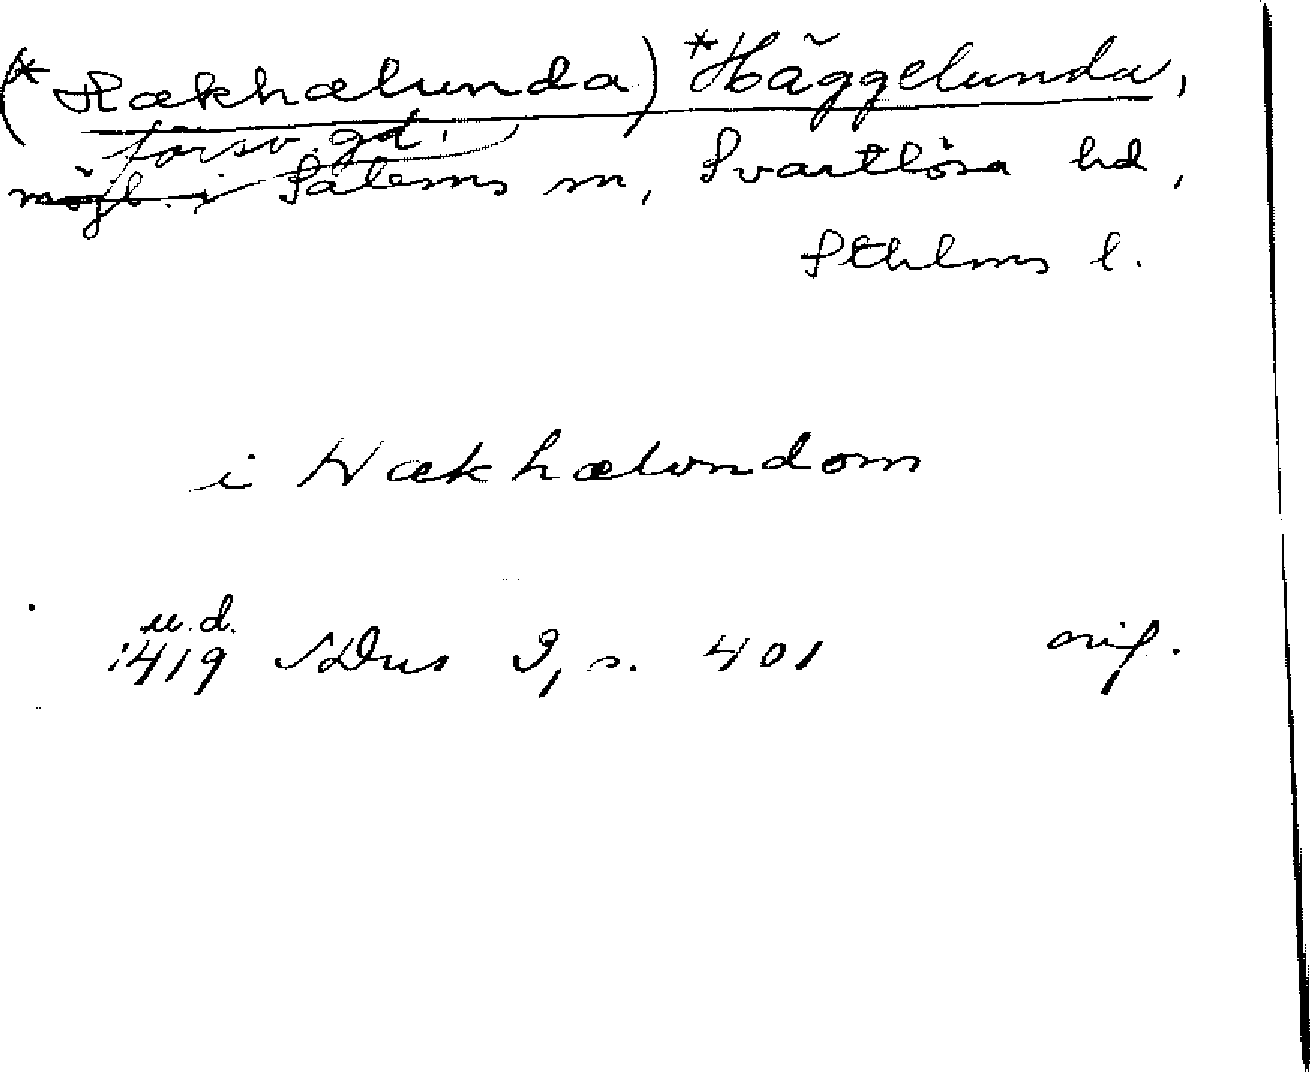 (*Hækhælunda) *Häggelunda,
försv. gd.
möjl. i Salems sn, Svartlösa hd,
Sthlms l.
i Hækhælvndom
u.d.
1419 SDns 3, s. 401 orig.